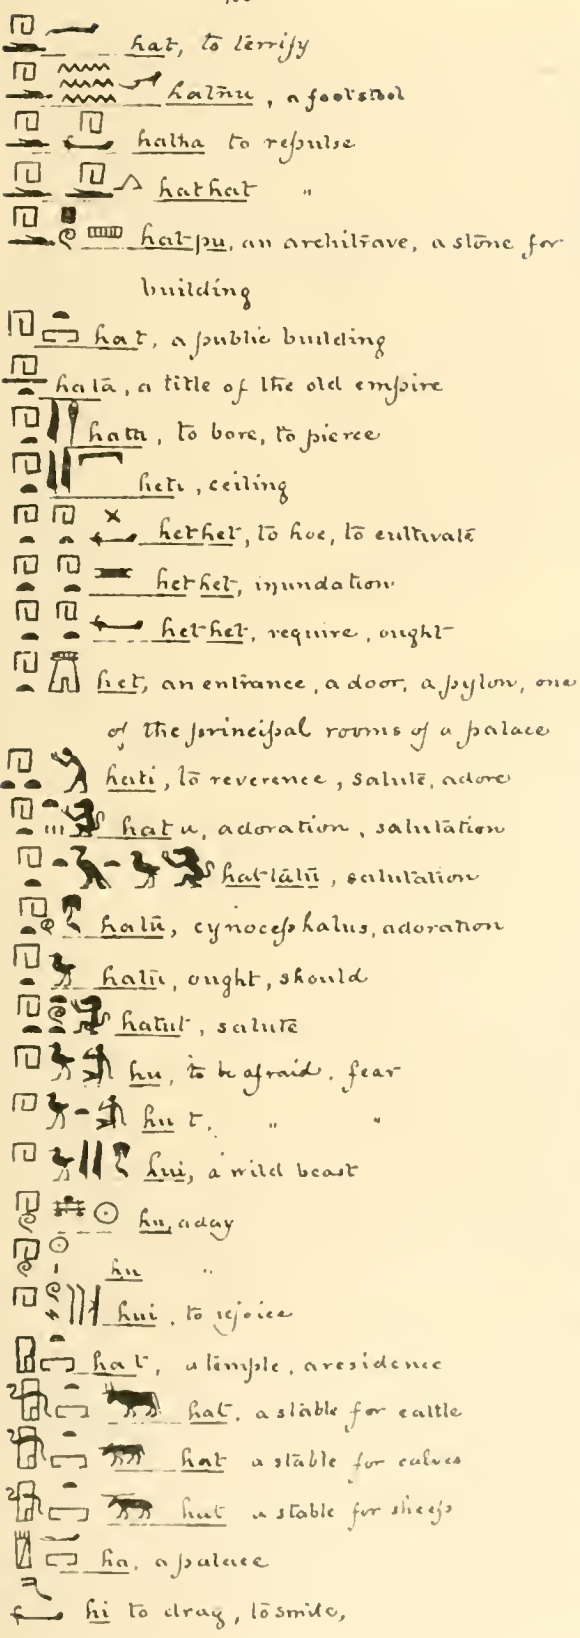 hat, to terrify
hatnu, a footstool
hatha to repulse
hathat "
hat-pu, an architrave, a stone for
building
hat, a public building
hatā, a title of the old empire
hatu, to bore, to pierce
heti, ceiling
hethet, to hoe, to cultivate
hethet, inundation
hethet, require, ought
het, an entrance, a door, a pylon, one
of the principal rooms of a palace
hati, to reverence, salute, adore
hatu, adoration, salutation
hattātū, salutation
hatū, cynocephalus, adoration
hatū, ought, should
hatut, salute
hu, to be afraid, fear
hut, " "
hui, a wild beast
hu, a day
hu "
hui, to rejoice
hat, a temple, a residence
hat, a stable for cattle
hat a stable for calves
hut a stable for sheep
ha, a palace
hi to drag, to smite,